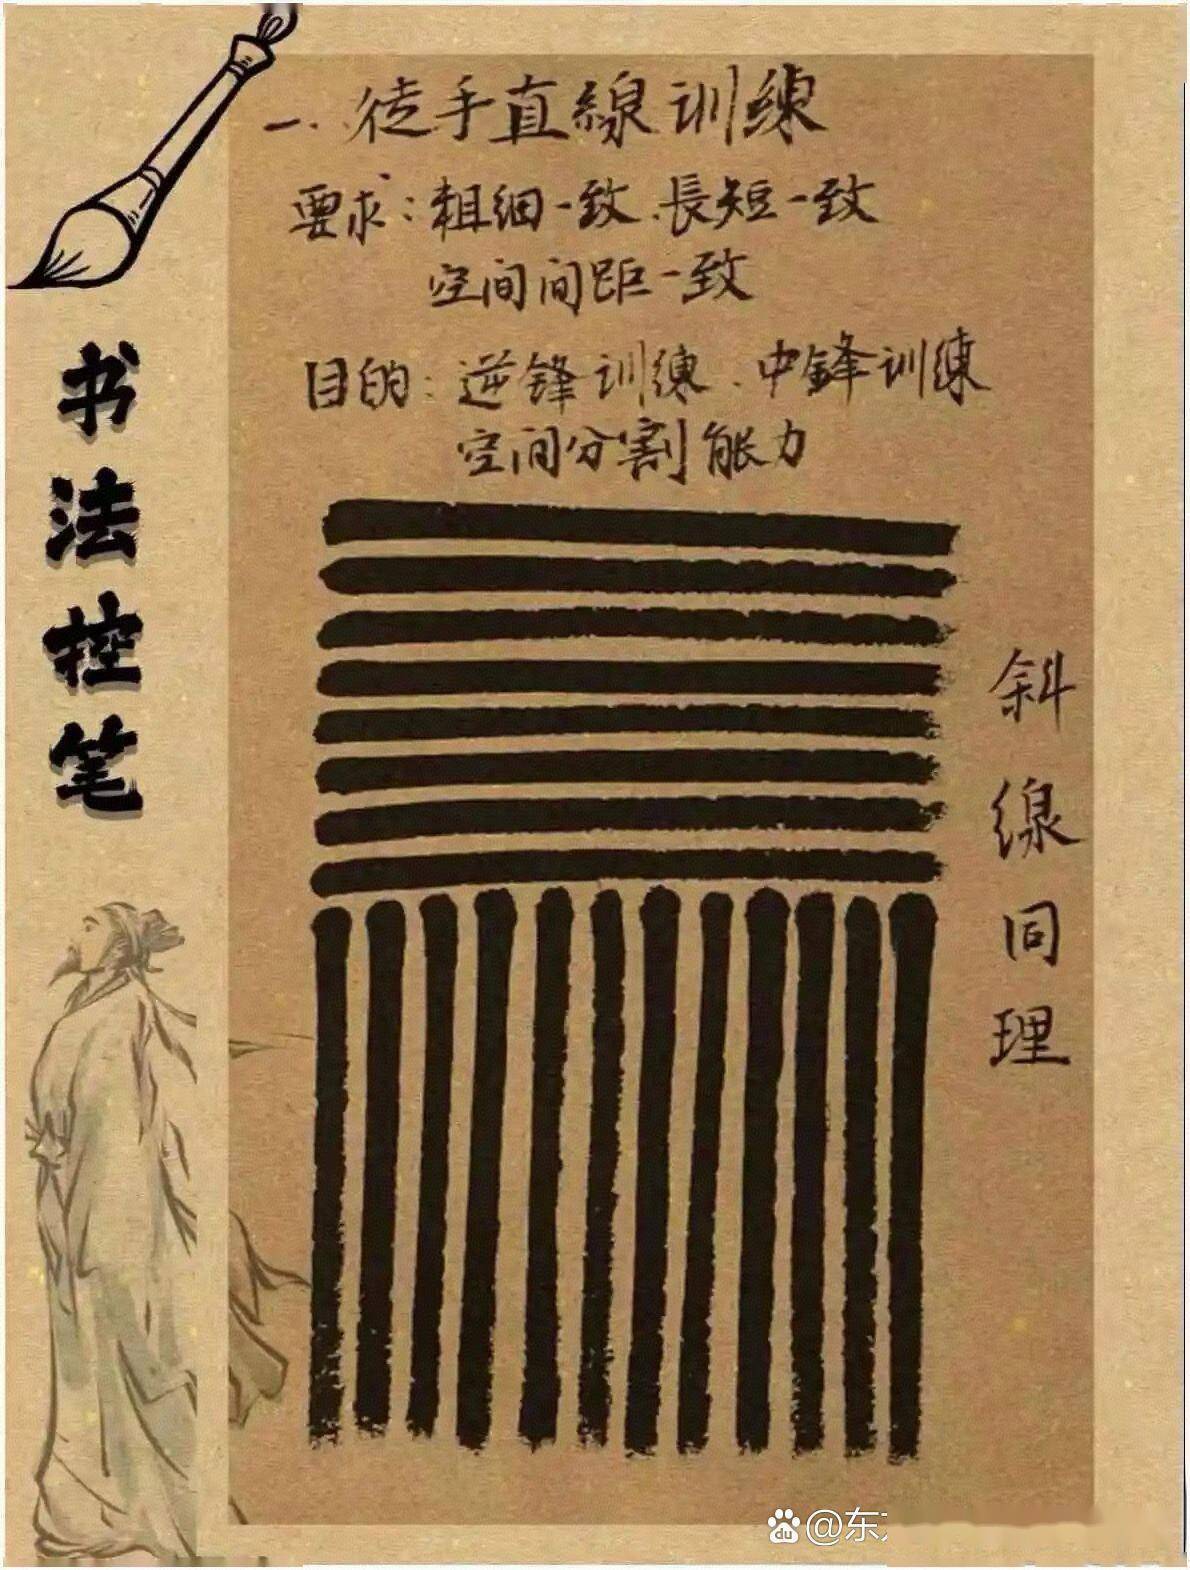 一、徒手直線训練
要求：粗细一致、長短一致
空间间距一致
目的：逆锋训練、中鋒训練
空间分割能力
斜線同理
书法控笔
du @东